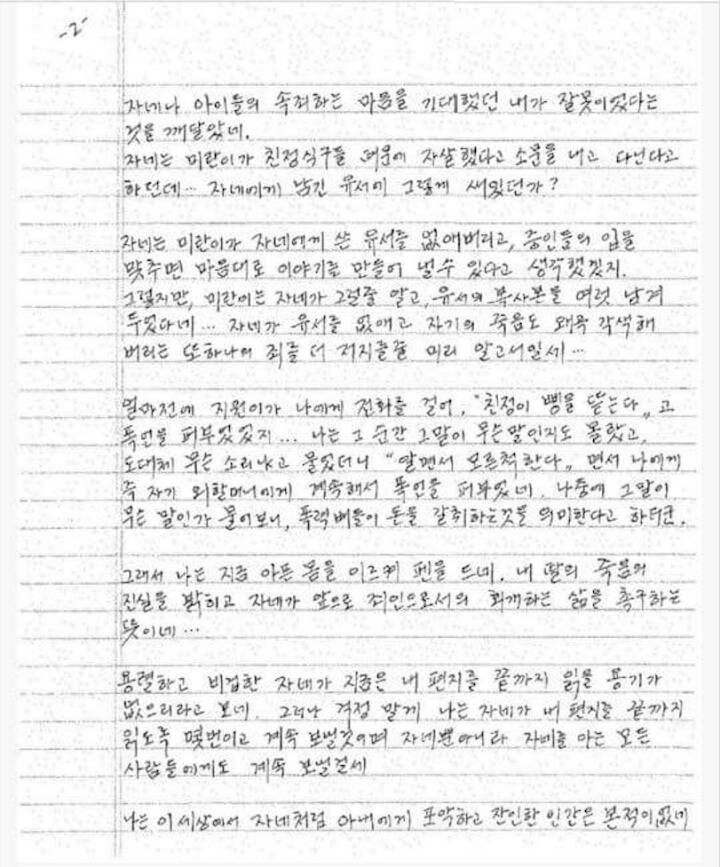 -2-
자네나 아이들의 속죄하는 마음을 기대했던 내가 잘못이었다는
것을 깨달았네.
자네는 미란이가 친정식구들 때문에 자살했다고 소문을 내고 다닌다고
하던데… 자네에게 남긴 유서에 그렇게 써있던가?
자네는 미란이가 자네에게 쓴 유서를 없애버리고, 증인들의 입을
맞추면 마음대로 이야기를 만들어 낼수 있다고 생각했겠지.
그렇지만, 미란이는 자네가 그럴줄 알고, 유서의 복사본을 여럿 남겨
두었다네… 자네가 유서를 없애고 자기의 죽음도 왜곡 각색해
버리는 또하나의 죄를 더 저지를줄 미리 알고서일세…
얼마전에 지원이가 나에게 전화를 걸어, "친정이 삥을 뜯는다„ 고
폭언을 퍼부었었지... 나는 그 순간 그말이 무슨말인지도 몰랐고,
도대체 무슨 소리냐고 물었더니 "알면서 모른척한다„ 면서 나에게
즉 자기 외할머니에게 계속해서 폭언을 퍼부었네. 나중에 그말이
무슨 말인가 물어보니, 폭력배들이 돈을 갈취하는것을 의미한다고 하더군.
그래서 나는 지금 아픈 몸을 이르켜 펜을 드네. 내 딸의 죽음의
진실을 밝히고 자네가 앞으로 죄인으로서의 회개하는 삶을 촉구하는
뜻이네…
용렬하고 비겁한 자네가 지금은 내 편지를 끝까지 읽을 용기가
없으리라고 보네. 그러나 걱정 말게 나는 자네가 내 편지를 끝까지
읽도록 몇번이고 계속 보낼것이며 자네뿐아니라 자네를 아는 모든
사람들에게도 계속 보낼걸세
나는 이 세상에서 자네처럼 아내에게 포악하고 잔인한 인간은 본적이없네